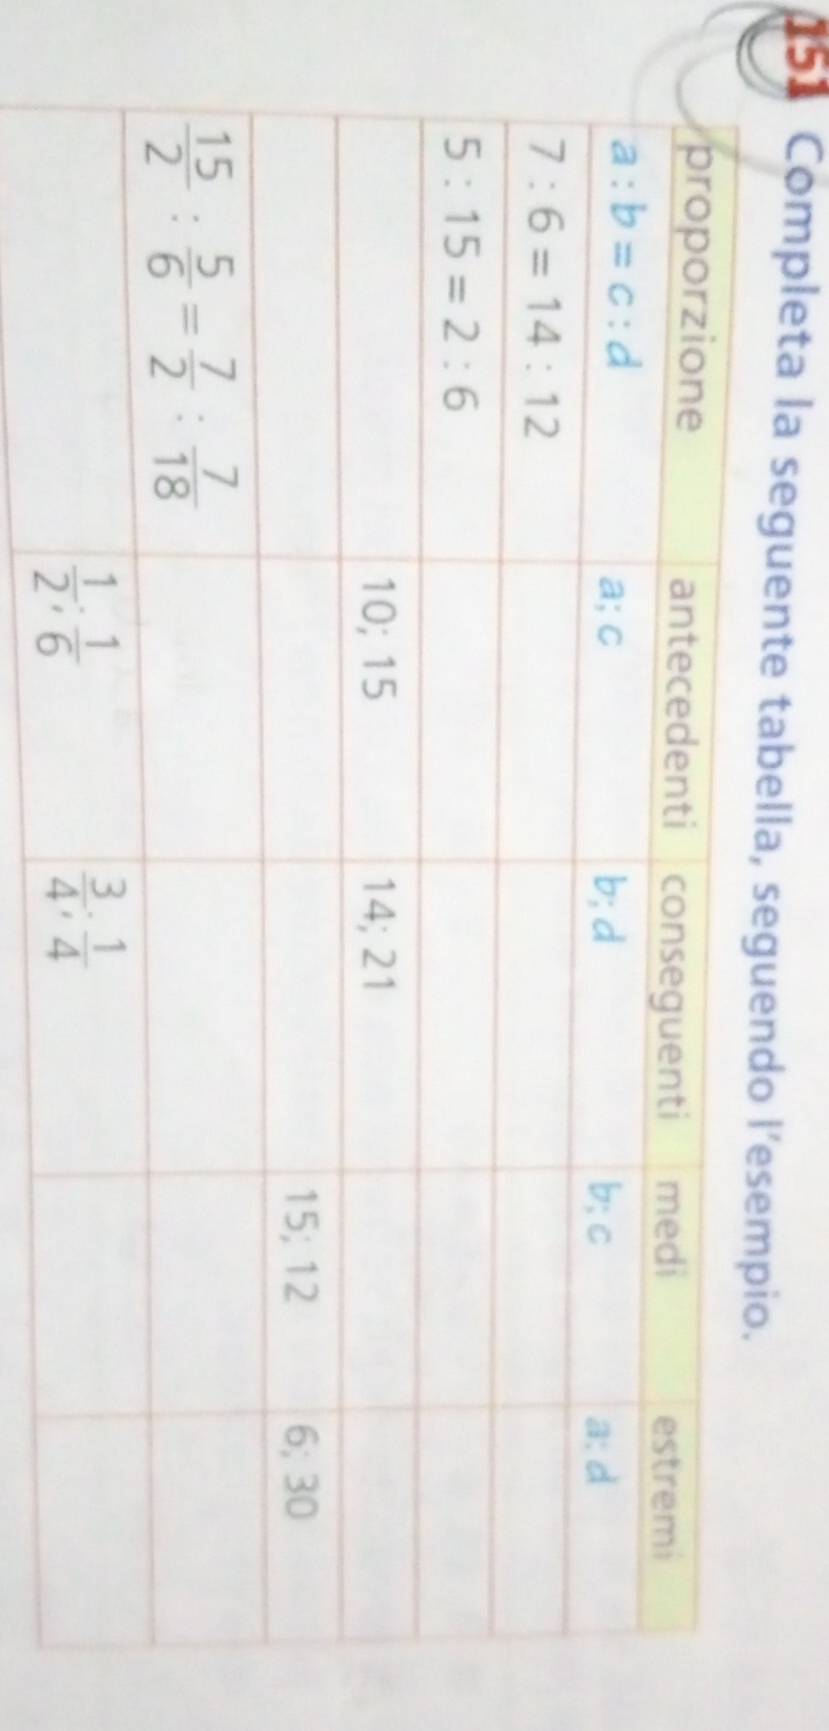 151 Completa la seguente tabella, seguendo l'esempio.
proporzione antecedenti conseguenti medi estremi
a : b = c : d a; c b; d b; c a; d
7 : 6 = 14 : 12
5 : 15 = 2 : 6
10; 15 14; 21
15; 12 6; 30
15/2 : 5/6 = 7/2 : 7/18
1/2; 1/6 3/4; 1/4